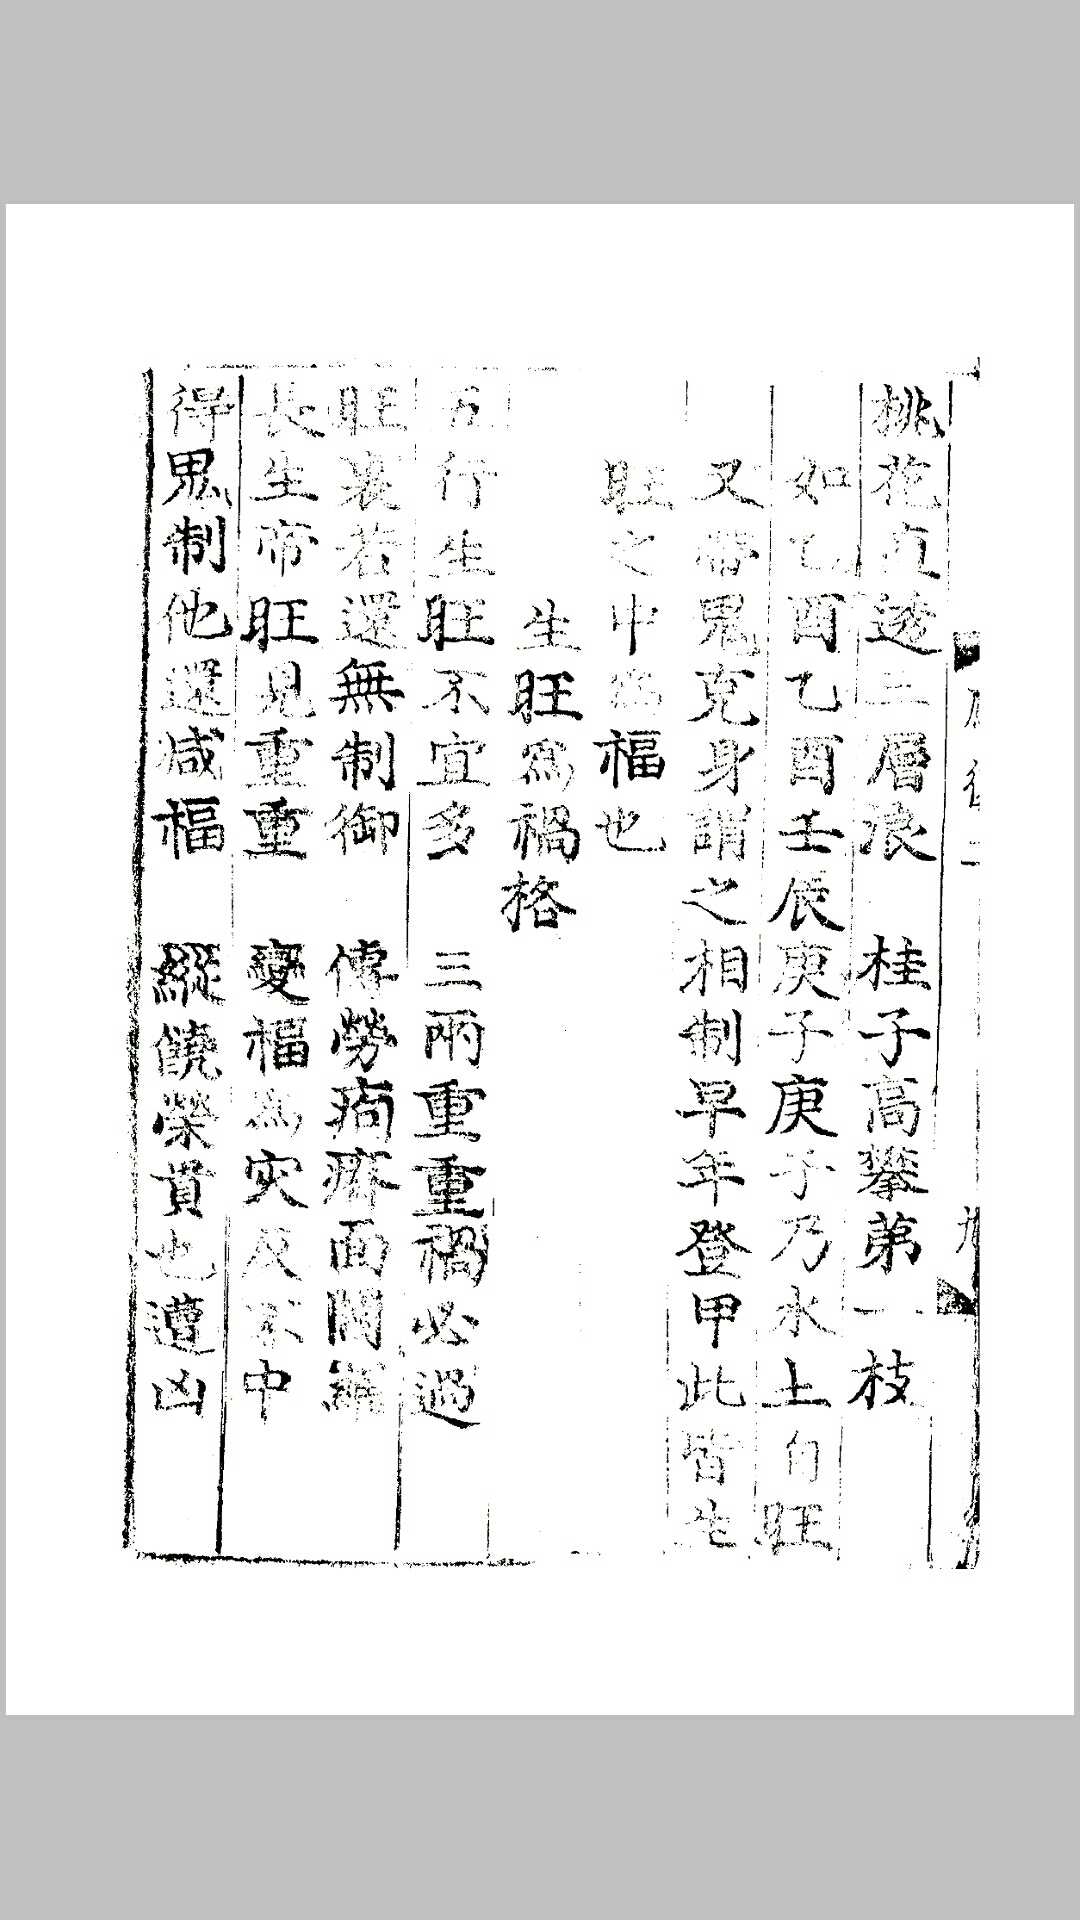 桃花直透三層浪　桂子高攀第一枝
如乙酉乙酉壬辰庚子庚子乃水土自旺
又帶鬼克身謂之相制早年登甲此皆生
旺之中為福也
生旺為禍格
五行生旺不宜多　三兩重重禍必過
旺衰若還無制御　傳勞痼癖面
長生帝旺見重重　變福為灾反不中
得鬼制他還咸福　縱饒榮貴也遭凶